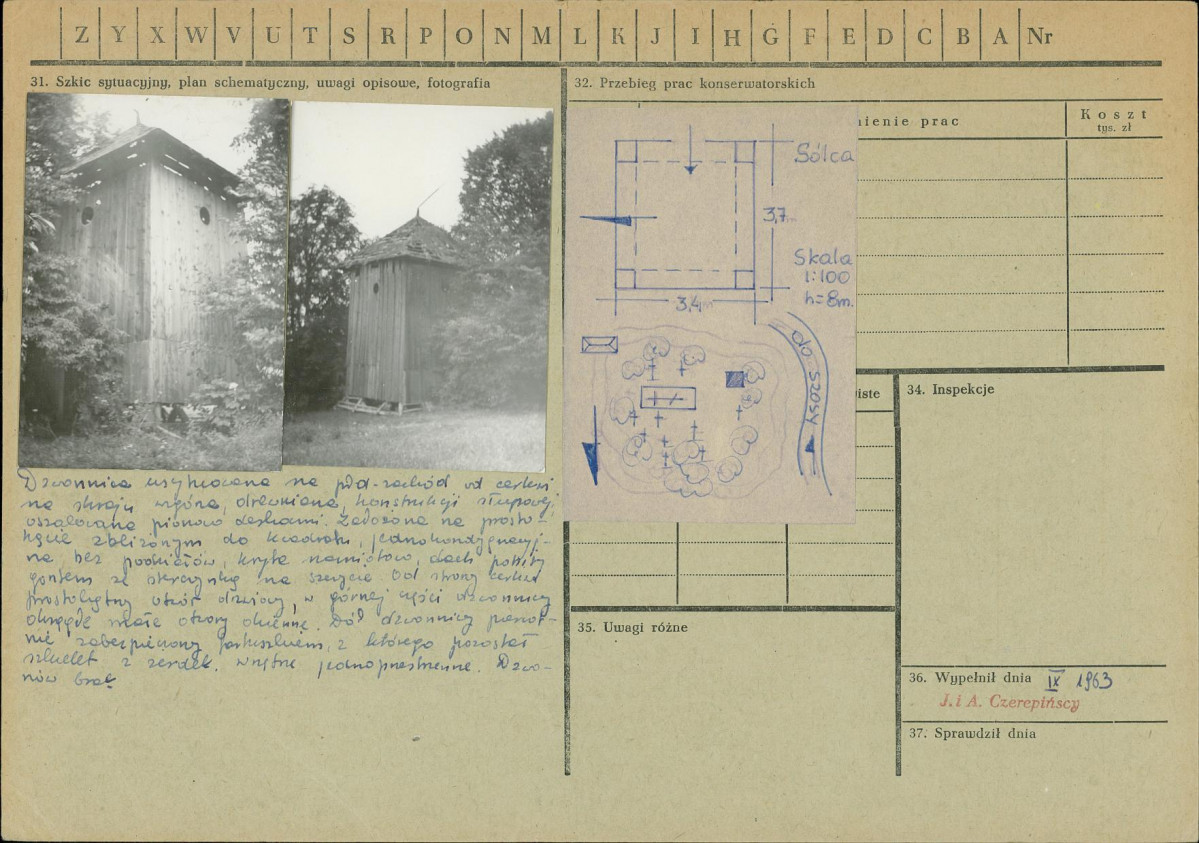 Z Y X W V U T S R P O N M L K J I H G F E D C B A Nr
31. Szkic sytuacyjny, plan schematyczny, uwagi opisowe, fotografia
Dzwonnica usytuowana na płd-zachód od cerkwi
na skraju wzgórza, drewniana, konstrukcji słupowej,
oszalowana pionowo deskami. Założona na prosto-
kącie zbliżonym do kwadratu, jednokondygnacyj-
na, bez podziałów, kryta namiotowo, dach pobity
gontem ze skrzynką na szczycie. Od strony cerkwi
prostokątny otwór drzwiowy, w górnej części dzwonnicy
okrągłe małe otwory okienne. Dół dzwonnicy pierwot-
nie zabezpieczony fartuszkiem, z którego pozostał
szkielet z żerdek. Wnętrze jednoprzestrzenne. Dzwo-
nów brak
32. Przebieg prac konserwatorskich
nienie prac
Koszt
tys. zł
Sólca
3,7m
Skala
1:100
h=8m.
3,4m
do szosy
iste
34. Inspekcje
35. Uwagi różne
36. Wypełnił dnia IX 1963
J. i A. Czerepińscy
37. Sprawdził dnia